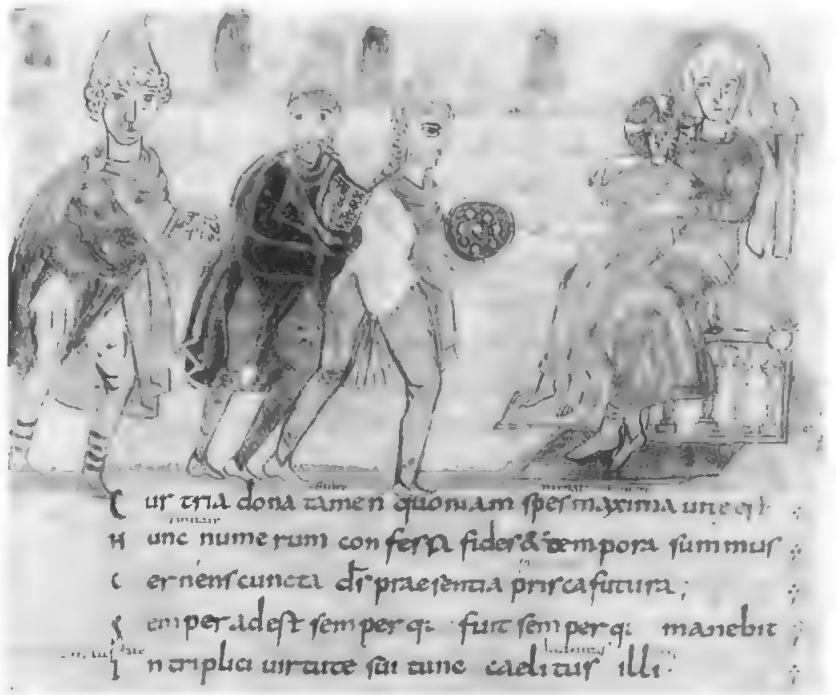 Cur tria dona tamen quoniam spes maxima uite e
Hunc numerum confessa fides & tempora summus
Cernens cuncta ds praesentia prisca futura;
Semper adest semper q: fuit semper q: manebit
In triplici uirtute sui tunc caelitus illi